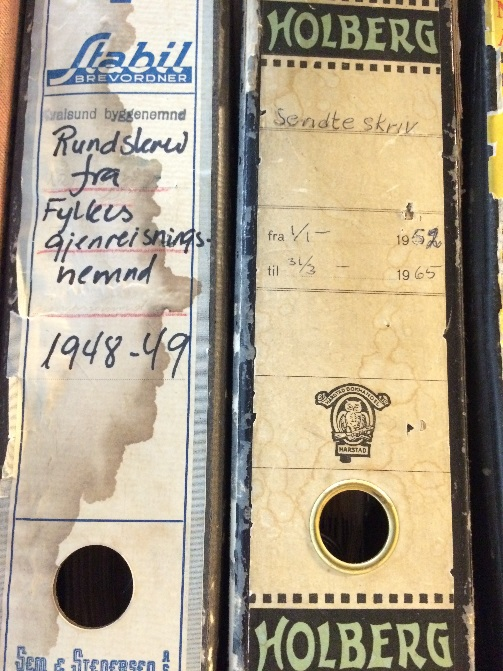 Stabil
BREVORDNER
Kvalsund byggenemnd
Rundskriv
fra
Fylkes
gjenreisnings-
nemnd
1948-49
SEM & STENERSEN A/S
HOLBERG
Sendte skriv
fra 1/1 - 1952
til 31/3 - 1965
HARSTAD
HOLBERG